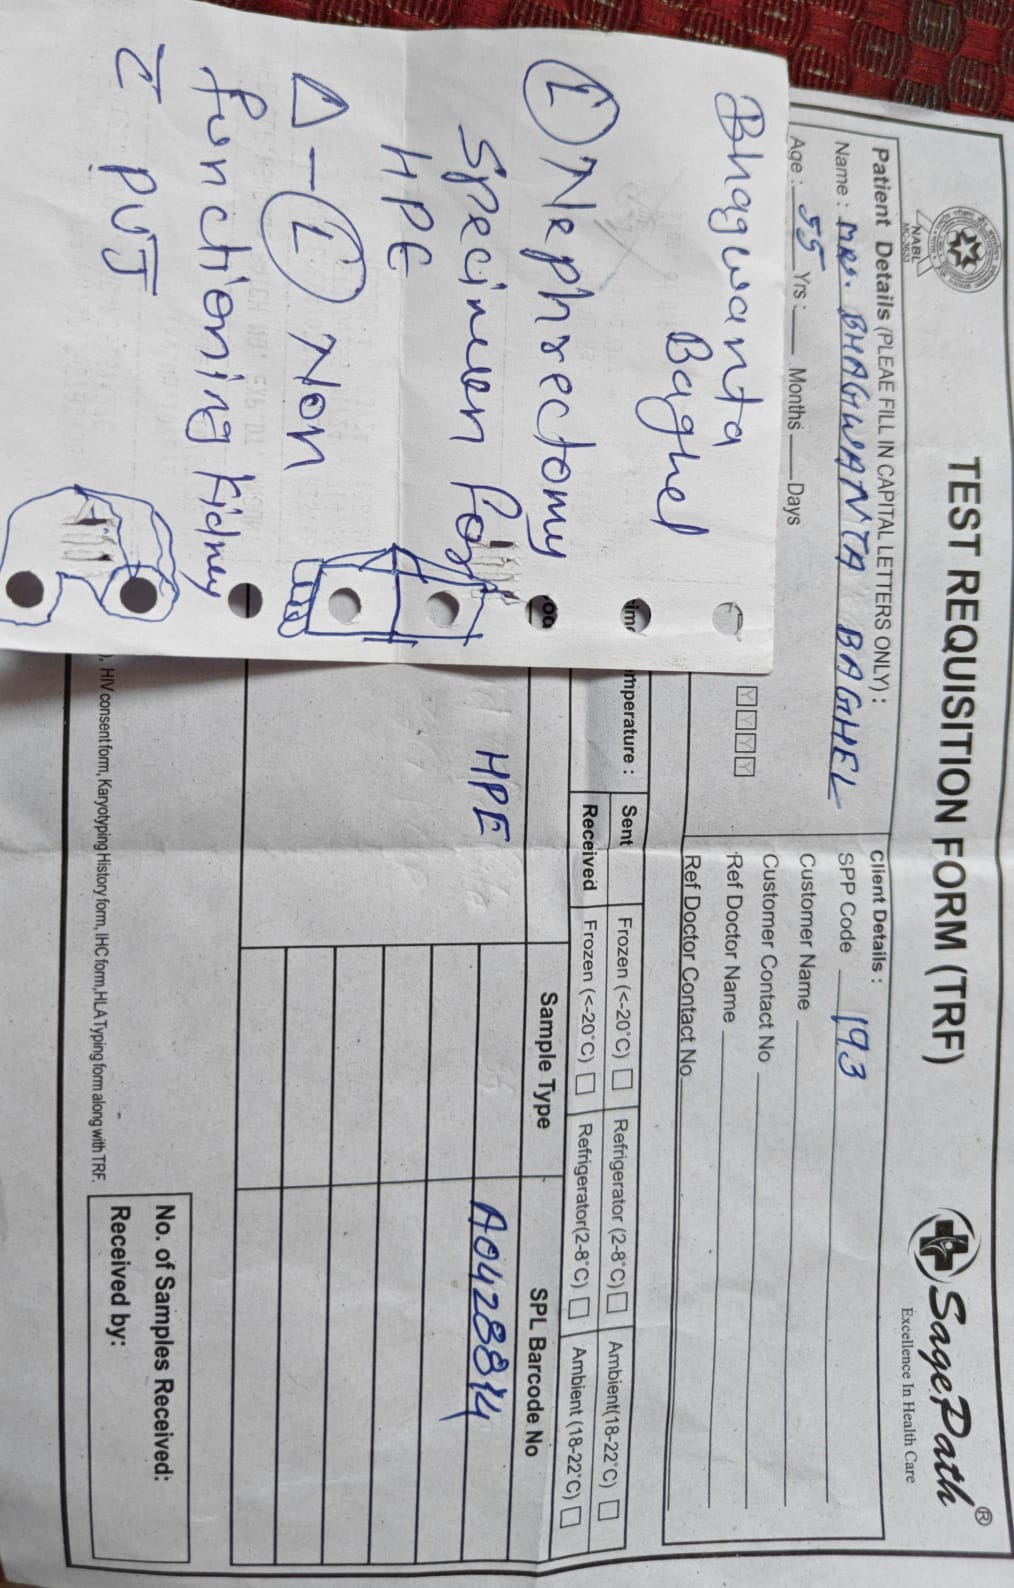 TEST REQUISITION FORM (TRF)
NABL
MC-2633
SagePath®
Excellence In Health Care
Patient Details (PLEAE FILL IN CAPITAL LETTERS ONLY) :
Name : MRS. BHAGWANTA BAGHEL
Age : 55 Yrs : Months Days
Client Details :
SPP Code 193
Customer Name
Customer Contact No
Ref Doctor Name
Ref Doctor Contact No
Y Y Y Y
mperature :
Sent
Frozen (<-20°C)
Refrigerator (2-8°C)
Ambient(18-22°C)
Received
Frozen (<-20°C)
Refrigerator(2-8°C)
Ambient (18-22°C)
Sample Type
SPL Barcode No
HPE
A0428814
), HIV consent form, Karyotyping History form, IHC form,HLA Typing form along with TRF.
No. of Samples Received:
Received by:
Bhagwanta
Baghel
L Nephrectomy
Specimen for
HPE
Δ - L Non
functioning kidney
c̄ PUJ